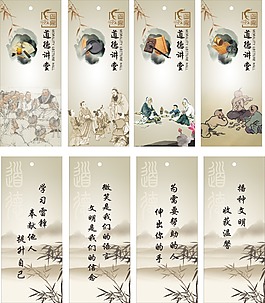 道德讲堂
道德讲堂
道德讲堂
道德讲堂
道德
学习雷锋
奉献他人
提升自己
道德
微笑是我们的语言
文明是我们的信念
道德
为需要帮助的人
伸出你的手
道德
播种文明
收获温馨